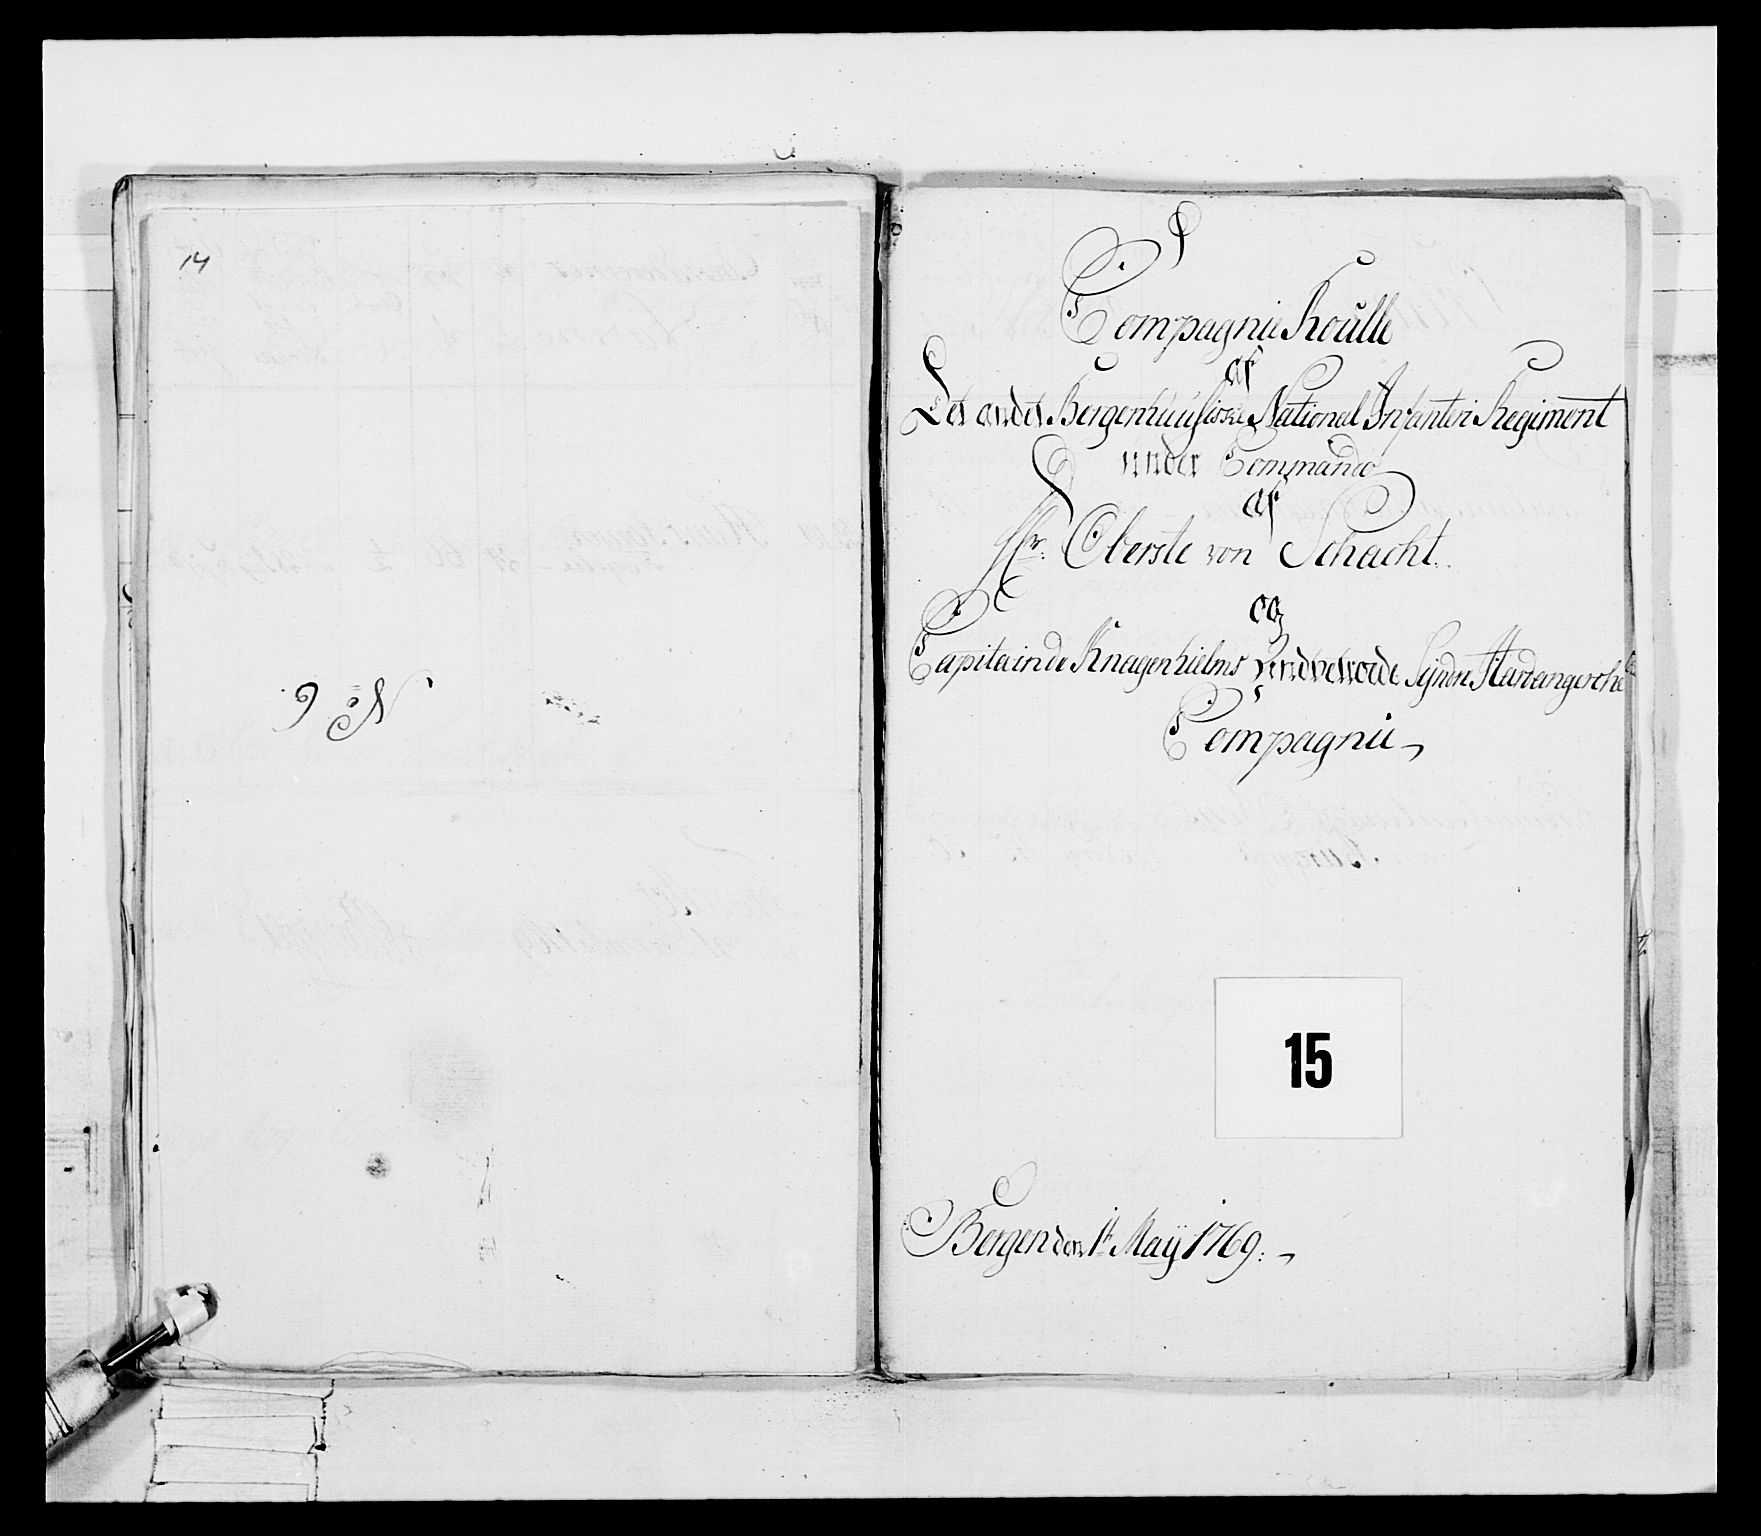 14
No 9
Compagnie Roulle
af
Det andet Bergenhuusiske National Infanteri Regiment
under Commando
af
Hr: Oberste von Schacht.
og
Capitain de Knagenhielms Søndre Hardangersche
Compagnie
15
Bergen den 1te Maÿ 1769.